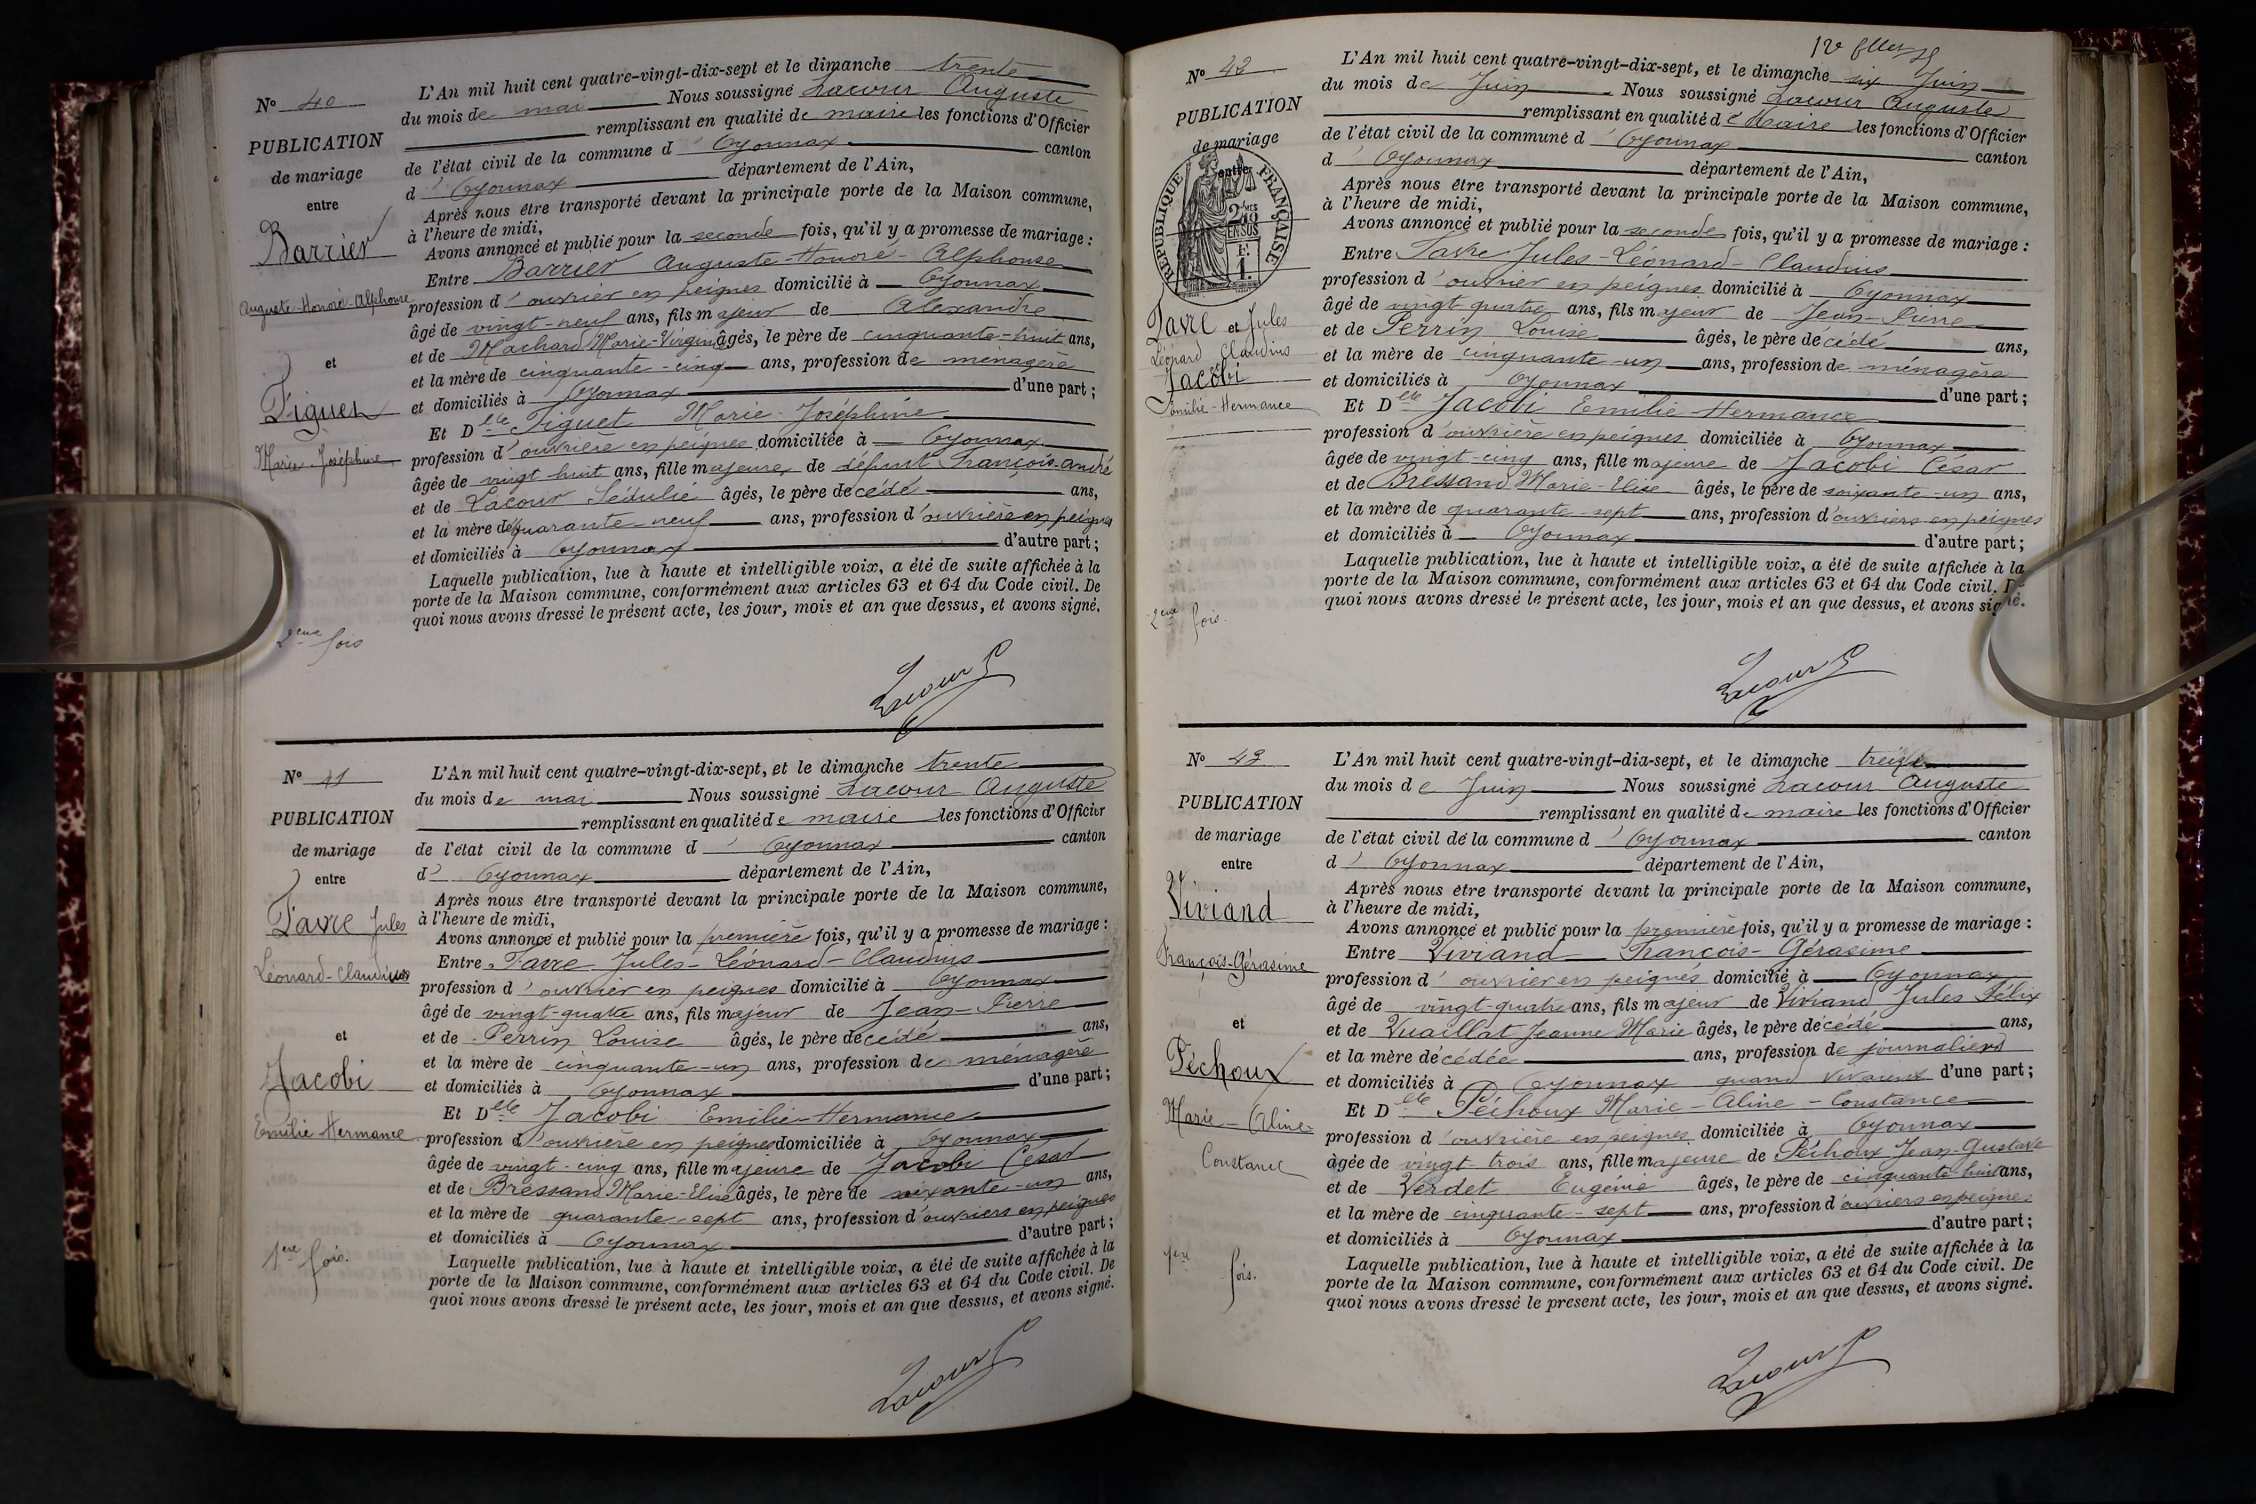 N° 40
PUBLICATION
de mariage
entre
Barrier
Auguste-Honoré-Alphonse
et
Figuet
Marie-Joséphine
2eme fois
L'An mil huit cent quatre-vingt-dix-sept et le dimanche trente
du mois de mai Nous soussigné Lacour Auguste
remplissant en qualité de maire les fonctions d'Officier
de l'état civil de la commune d'Oyonnax canton
d'Oyonnax département de l'Ain,
Après nous être transporté devant la principale porte de la Maison commune,
à l'heure de midi,
Avons annoncé et publié pour la seconde fois, qu'il y a promesse de mariage :
Entre Barrier Auguste-Honoré-Alphonse
profession d'ouvrier en peignes domicilié à Oyonnax
âgé de vingt-neuf ans, fils majeur de Alexandre
et de Machard Marie-Virginie âgés, le père de cinquante-huit ans,
et la mère de cinquante-cinq ans, profession de ménagère
et domiciliés à Oyonnax d'une part ;
Et Delle Figuet Marie-Joséphine
profession d'ouvrière en peignes domiciliée à Oyonnax
âgée de vingt huit ans, fille majeure de défunt François-André
et de Lacour Sédulie âgés, le père decédé ans,
et la mère de quarante-neuf ans, profession d'ouvrière en peignes
et domiciliés à Oyonnax d'autre part ;
Laquelle publication, lue à haute et intelligible voix, a été de suite affichée à la
porte de la Maison commune, conformément aux articles 63 et 64 du Code civil. De
quoi nous avons dressé le présent acte, les jour, mois et an que dessus, et avons signé.
Lacour
N° 41
PUBLICATION
de mariage
entre
Favre Jules
Léonard-Claudius
et
Jacobi
Emilie Hermance
1ere fois.
L'An mil huit cent quatre-vingt-dix-sept, et le dimanche trente
du mois de mai Nous soussigné Lacour Auguste
remplissant en qualité de maire les fonctions d'Officier
de l'état civil de la commune d'Oyonnax canton
d'Oyonnax département de l'Ain,
Après nous être transporté devant la principale porte de la Maison commune,
à l'heure de midi,
Avons annoncé et publié pour la première fois, qu'il y a promesse de mariage :
Entre Favre Jules-Léonard-Claudius
profession d'ouvrier en peignes domicilié à Oyonnax
âgé de vingt-quatre ans, fils majeur de Jean-Pierre
et de Perrin Louise âgés, le père decédé ans,
et la mère de cinquante-un ans, profession de ménagère
et domiciliés à Oyonnax d'une part ;
Et Delle Jacobi Emilie-Hermance
profession d'ouvrière en peignes domiciliée à Oyonnax
âgée de vingt-cinq ans, fille majeure de Jacobi César
et de Bressand Marie-Elise âgés, le père de soixante-un ans,
et la mère de quarante-sept ans, profession d'ouvriers en peignes
et domiciliés à Oyonnax d'autre part ;
Laquelle publication, lue à haute et intelligible voix, a été de suite affichée à la
porte de la Maison commune, conformément aux articles 63 et 64 du Code civil. De
quoi nous avons dressé le présent acte, les jour, mois et an que dessus, et avons signé.
Lacour
N° 42
PUBLICATION
de mariage
entre
RÉPUBLIQUE FRANÇAISE
F.
1.
Favre et Jules
Léonard Claudius
Jacobi
Emilie-Hermance
2eme fois.
L'An mil huit cent quatre-vingt-dix-sept, et le dimanche six Juin
du mois de Juin Nous soussigné Lacour Auguste
remplissant en qualité de Maire les fonctions d'Officier
de l'état civil de la commune d'Oyonnax canton
d'Oyonnax département de l'Ain,
Après nous être transporté devant la principale porte de la Maison commune,
à l'heure de midi,
Avons annoncé et publié pour la seconde fois, qu'il y a promesse de mariage :
Entre Favre Jules-Léonard-Claudius
profession d'ouvrier en peignes domicilié à Oyonnax
âgé de vingt quatre ans, fils majeur de Jean-Pierre
et de Perrin Louise âgés, le père décédé ans,
et la mère de cinquante-un ans, profession de ménagère
et domiciliés à Oyonnax d'une part ;
Et Delle Jacobi Emilie-Hermance
profession d'ouvrière en peignes domiciliée à Oyonnax
âgée de vingt-cinq ans, fille majeure de Jacobi César
et de Bressand Marie-Elise âgés, le père de soixante-un ans,
et la mère de quarante-sept ans, profession d'ouvriers en peignes
et domiciliés à Oyonnax d'autre part ;
Laquelle publication, lue à haute et intelligible voix, a été de suite affichée à la
porte de la Maison commune, conformément aux articles 63 et 64 du Code civil. De
quoi nous avons dressé le présent acte, les jour, mois et an que dessus, et avons signé.
Lacour
N° 43
PUBLICATION
de mariage
entre
Viviand
François-Gérasime
et
Péchoux
Marie-Aline
Constance
1ere fois.
L'An mil huit cent quatre-vingt-dix-sept, et le dimanche treize
du mois de Juin Nous soussigné Lacour Auguste
remplissant en qualité de maire les fonctions d'Officier
de l'état civil de la commune d'Oyonnax canton
d'Oyonnax département de l'Ain,
Après nous être transporté devant la principale porte de la Maison commune,
à l'heure de midi,
Avons annoncé et publié pour la première fois, qu'il y a promesse de mariage :
Entre Viviand François-Gérasime
profession d'ouvrier en peignes domicilié à Oyonnax
âgé de vingt-quatre ans, fils majeur de Viviand Jules Félix
et de Vuaillat Jeanne Marie âgés, le père décédé ans,
et la mère décédée ans, profession de journaliers
et domiciliés à Oyonnax quand vivaient d'une part ;
Et Delle Péchoux Marie-Aline-Constance
profession d'ouvrière en peignes domiciliée à Oyonnax
âgée de vingt-trois ans, fille majeure de Péchoux Jean-Gustave
et de Verdet Eugénie âgés, le père de cinquante-huit ans,
et la mère de cinquante-sept ans, profession d'ouvriers en peignes
et domiciliés à Oyonnax d'autre part ;
Laquelle publication, lue à haute et intelligible voix, a été de suite affichée à la
porte de la Maison commune, conformément aux articles 63 et 64 du Code civil. De
quoi nous avons dressé le présent acte, les jour, mois et an que dessus, et avons signé.
Lacour